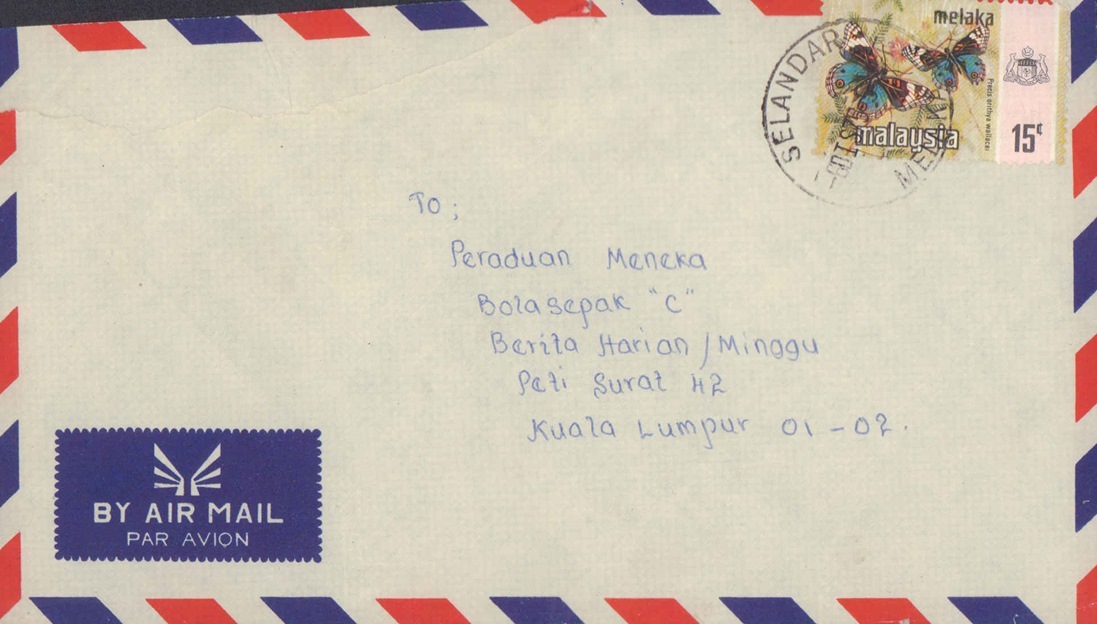 melaka
Precis orithya wallacei
malaysia
15¢
SELANDAR
MELAKA
TO;
Peraduan Meneka
Bolasepak "C"
Berita Harian/Minggu
Peti Surat 42
Kuala Lumpur 01-02.
BY AIR MAIL
PAR AVION